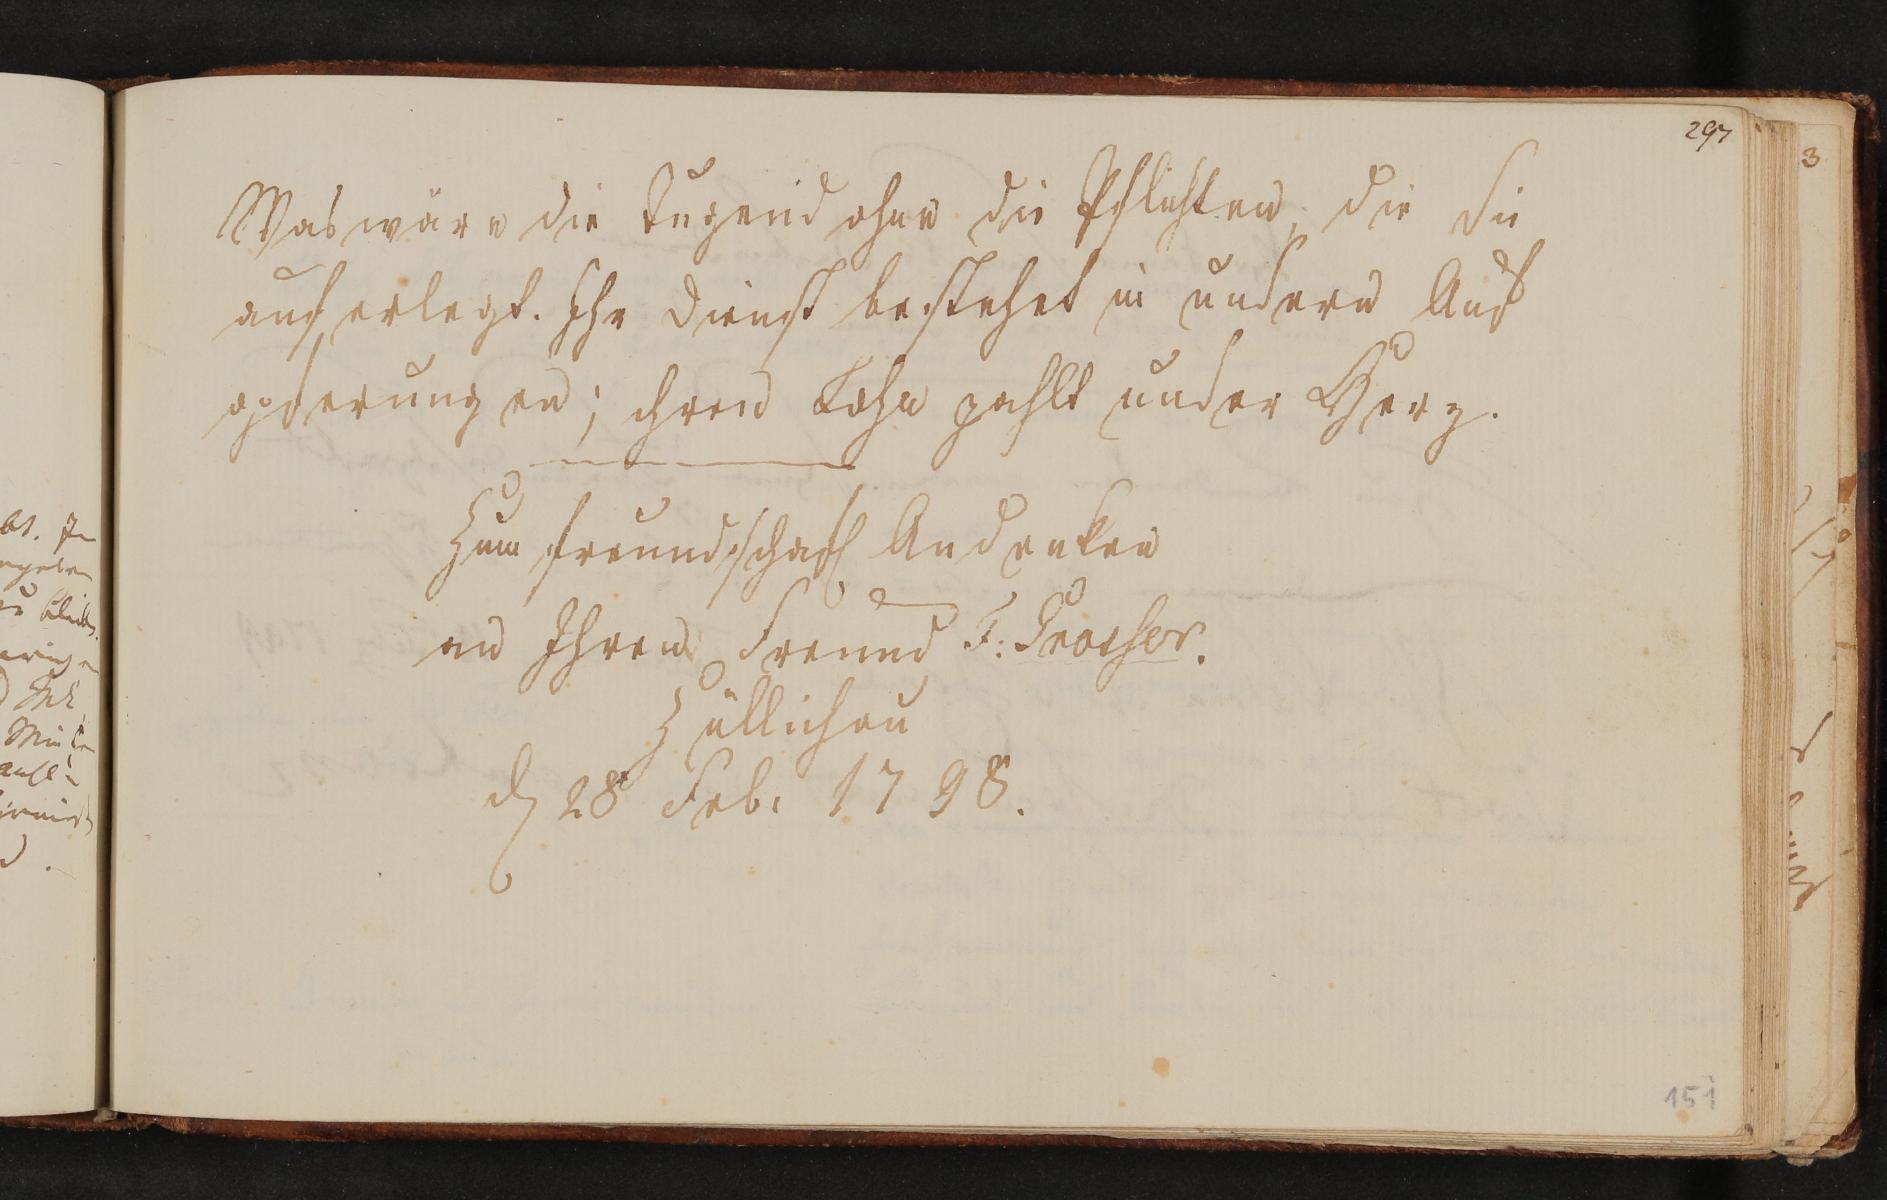 297
Was wäre die Tugend ohne die Pflichten, die sie
auf erlegt. Ihr Dienst bestehet in unsern Auf
opferungen; ihren Lohn zahlt unser Herz.
Zum freundschaftl Andenken
an Ihren Freund F. Troscher.
Züllichau
d 28t Feb: 1798.
151
3